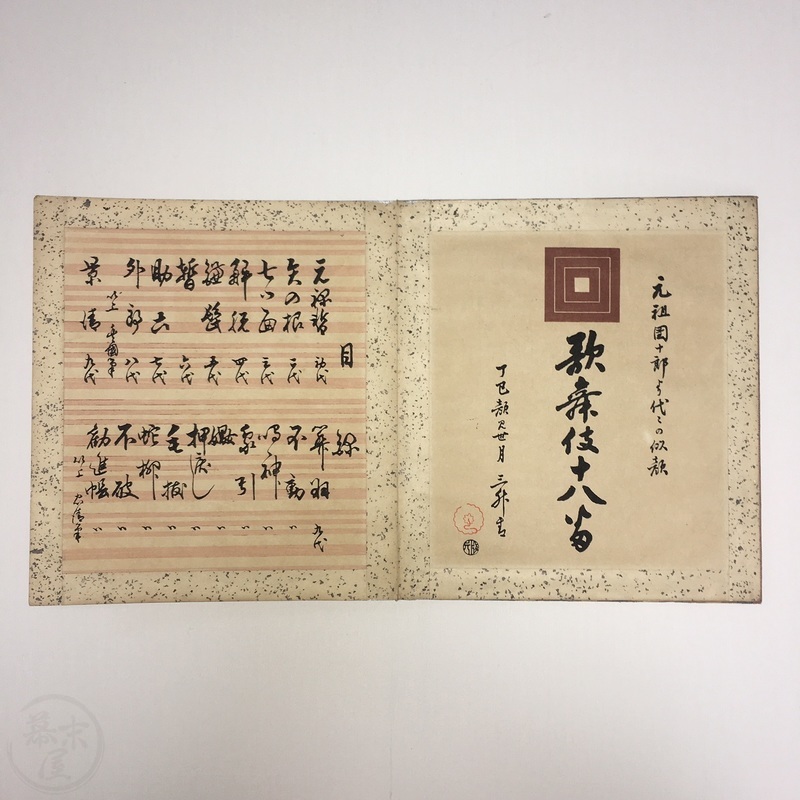 元祖團十郎より代々の似顔
歌舞伎十八番
丁巳顔見世月 三升書
目録
元禄暫 初代
矢の根 二代
七ツ面 三代
解脱 四代
鎌髭 五代
暫 六代
助六 七代
外郎 八代
以上 豊國筆
景清 九代
関羽 九代
不動 〃
鳴神 〃
象引 〃
嫐 〃
押戻し 〃
毛抜 〃
蛇柳 〃
不破 〃
勧進帳 〃
以上 忠清筆
幕末屋